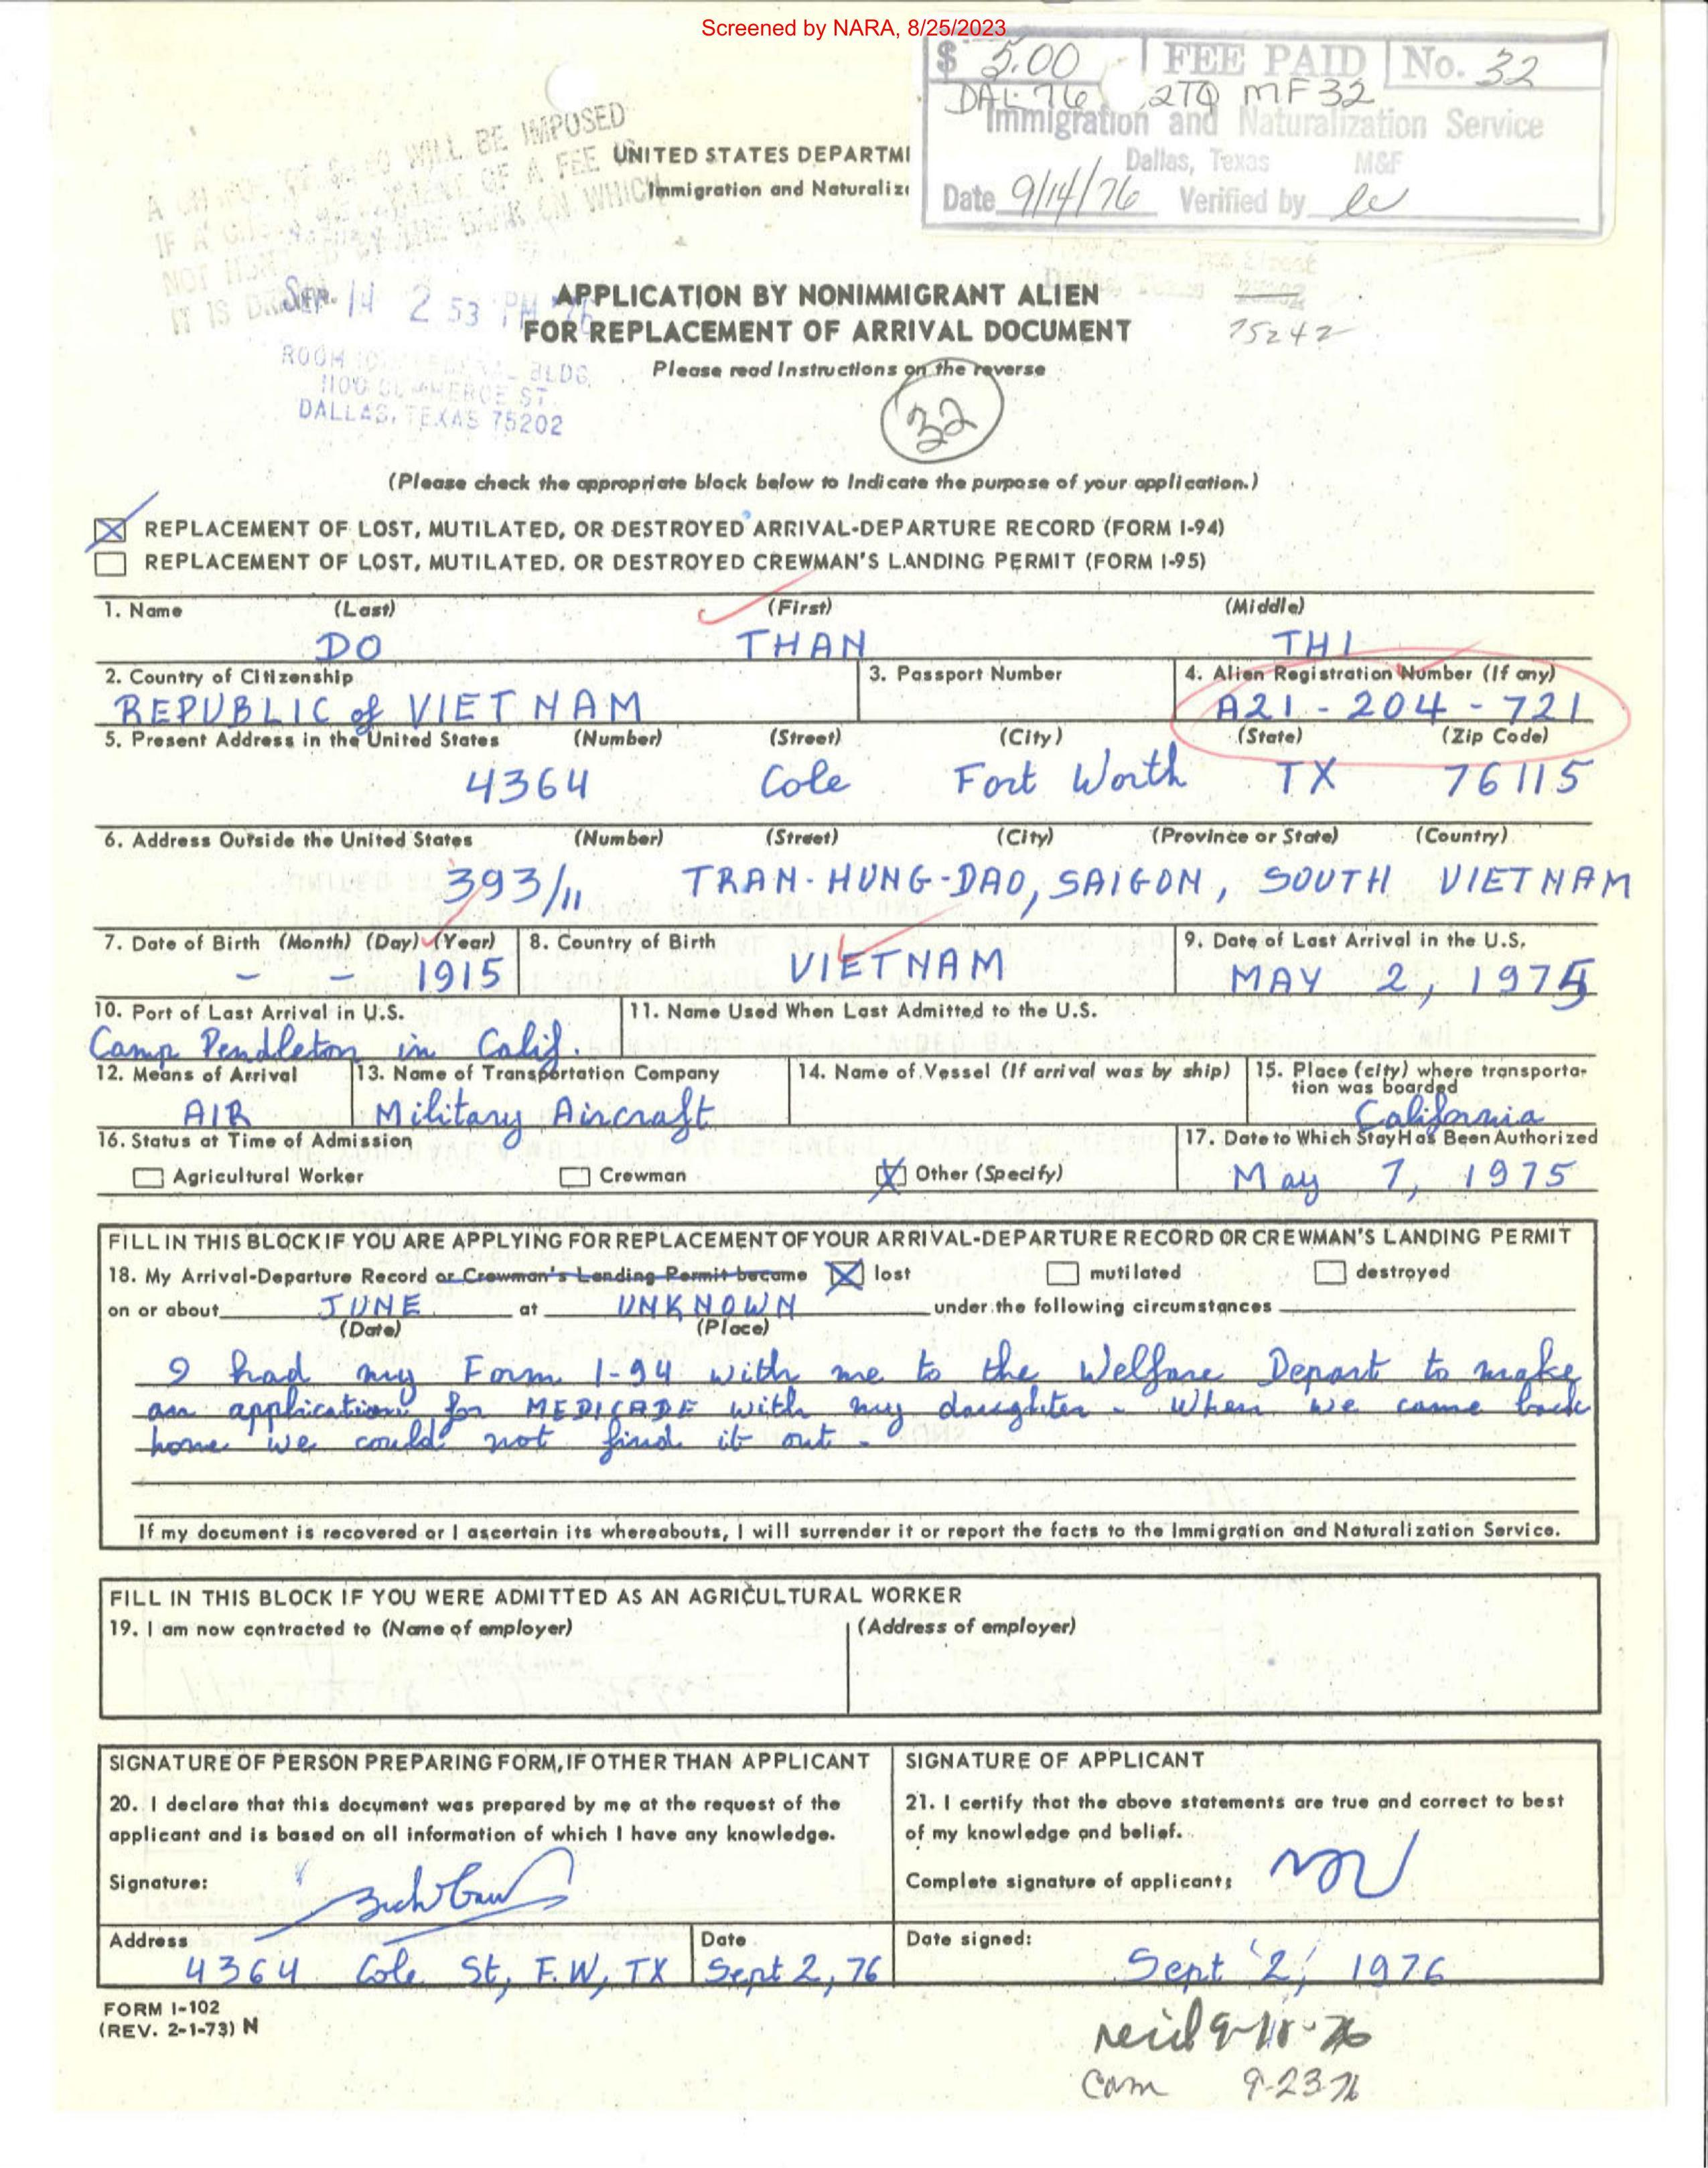 Screened by NARA, 8/25/2023
$ 5.00 FEE PAID No. 32
DAL 76 2TQ MF32
Immigration and Naturalization Service
Dallas, Texas M&F
Date 9/14/76 Verified by
WILL BE IMPOSED
OF A FEE
WHICH
NOT
IT IS
UNITED STATES DEPARTM
Immigration and Naturaliz
SEP 14 2 53 PM
ROOM BLDG.
1100 COMMERCE ST.
DALLAS, TEXAS 75202
APPLICATION BY NONIMMIGRANT ALIEN
FOR REPLACEMENT OF ARRIVAL DOCUMENT
75242
Please read Instructions on the reverse
32
(Please check the appropriate block below to Indicate the purpose of your application.)
REPLACEMENT OF LOST, MUTILATED, OR DESTROYED ARRIVAL-DEPARTURE RECORD (FORM I-94)
REPLACEMENT OF LOST, MUTILATED, OR DESTROYED CREWMAN'S LANDING PERMIT (FORM I-95)
1. Name (Last) (First) (Middle)
DO THAN THI
2. Country of Citizenship 3. Passport Number 4. Alien Registration Number (If any)
REPUBLIC of VIET NAM A21-204-721
5. Present Address in the United States (Number) (Street) (City) (State) (Zip Code)
4364 Cole Fort Worth TX 76115
6. Address Outside the United States (Number) (Street) (City) (Province or State) (Country)
393/11 TRAN-HUNG-DAO, SAIGON, SOUTH VIETNAM
7. Date of Birth (Month) (Day) (Year) 8. Country of Birth 9. Date of Last Arrival in the U.S.
- - 1915 VIETNAM MAY 2, 1975
10. Port of Last Arrival in U.S. 11. Name Used When Last Admitted to the U.S.
Camp Pendleton in Calif.
12. Means of Arrival 13. Name of Transportation Company 14. Name of Vessel (If arrival was by ship) 15. Place (city) where transporta-
tion was boarded
AIR Military Aircraft California
16. Status at Time of Admission 17. Date to Which Stay Has Been Authorized
Agricultural Worker Crewman Other (Specify) May 7, 1975
FILL IN THIS BLOCK IF YOU ARE APPLYING FOR REPLACEMENT OF YOUR ARRIVAL-DEPARTURE RECORD OR CREWMAN'S LANDING PERMIT
18. My Arrival-Departure Record or Crewman's Landing Permit became lost mutilated destroyed
on or about JUNE at UNKNOWN under the following circumstances
(Date) (Place)
I had my Form I-94 with me to the Welfare Depart to make
an application for MEDICADE with my daughter - When we came back
home we could not find it out -
If my document is recovered or I ascertain its whereabouts, I will surrender it or report the facts to the Immigration and Naturalization Service.
FILL IN THIS BLOCK IF YOU WERE ADMITTED AS AN AGRICULTURAL WORKER
19. I am now contracted to (Name of employer) (Address of employer)
SIGNATURE OF PERSON PREPARING FORM, IF OTHER THAN APPLICANT
20. I declare that this document was prepared by me at the request of the
applicant and is based on all information of which I have any knowledge.
Signature:
Address Date
4364 Cole St, F.W, TX Sept 2, 76
SIGNATURE OF APPLICANT
21. I certify that the above statements are true and correct to best
of my knowledge and belief.
Complete signature of applicant:
Date signed:
Sept 2, 1976
FORM I-102
(REV. 2-1-73) N
9-23-76